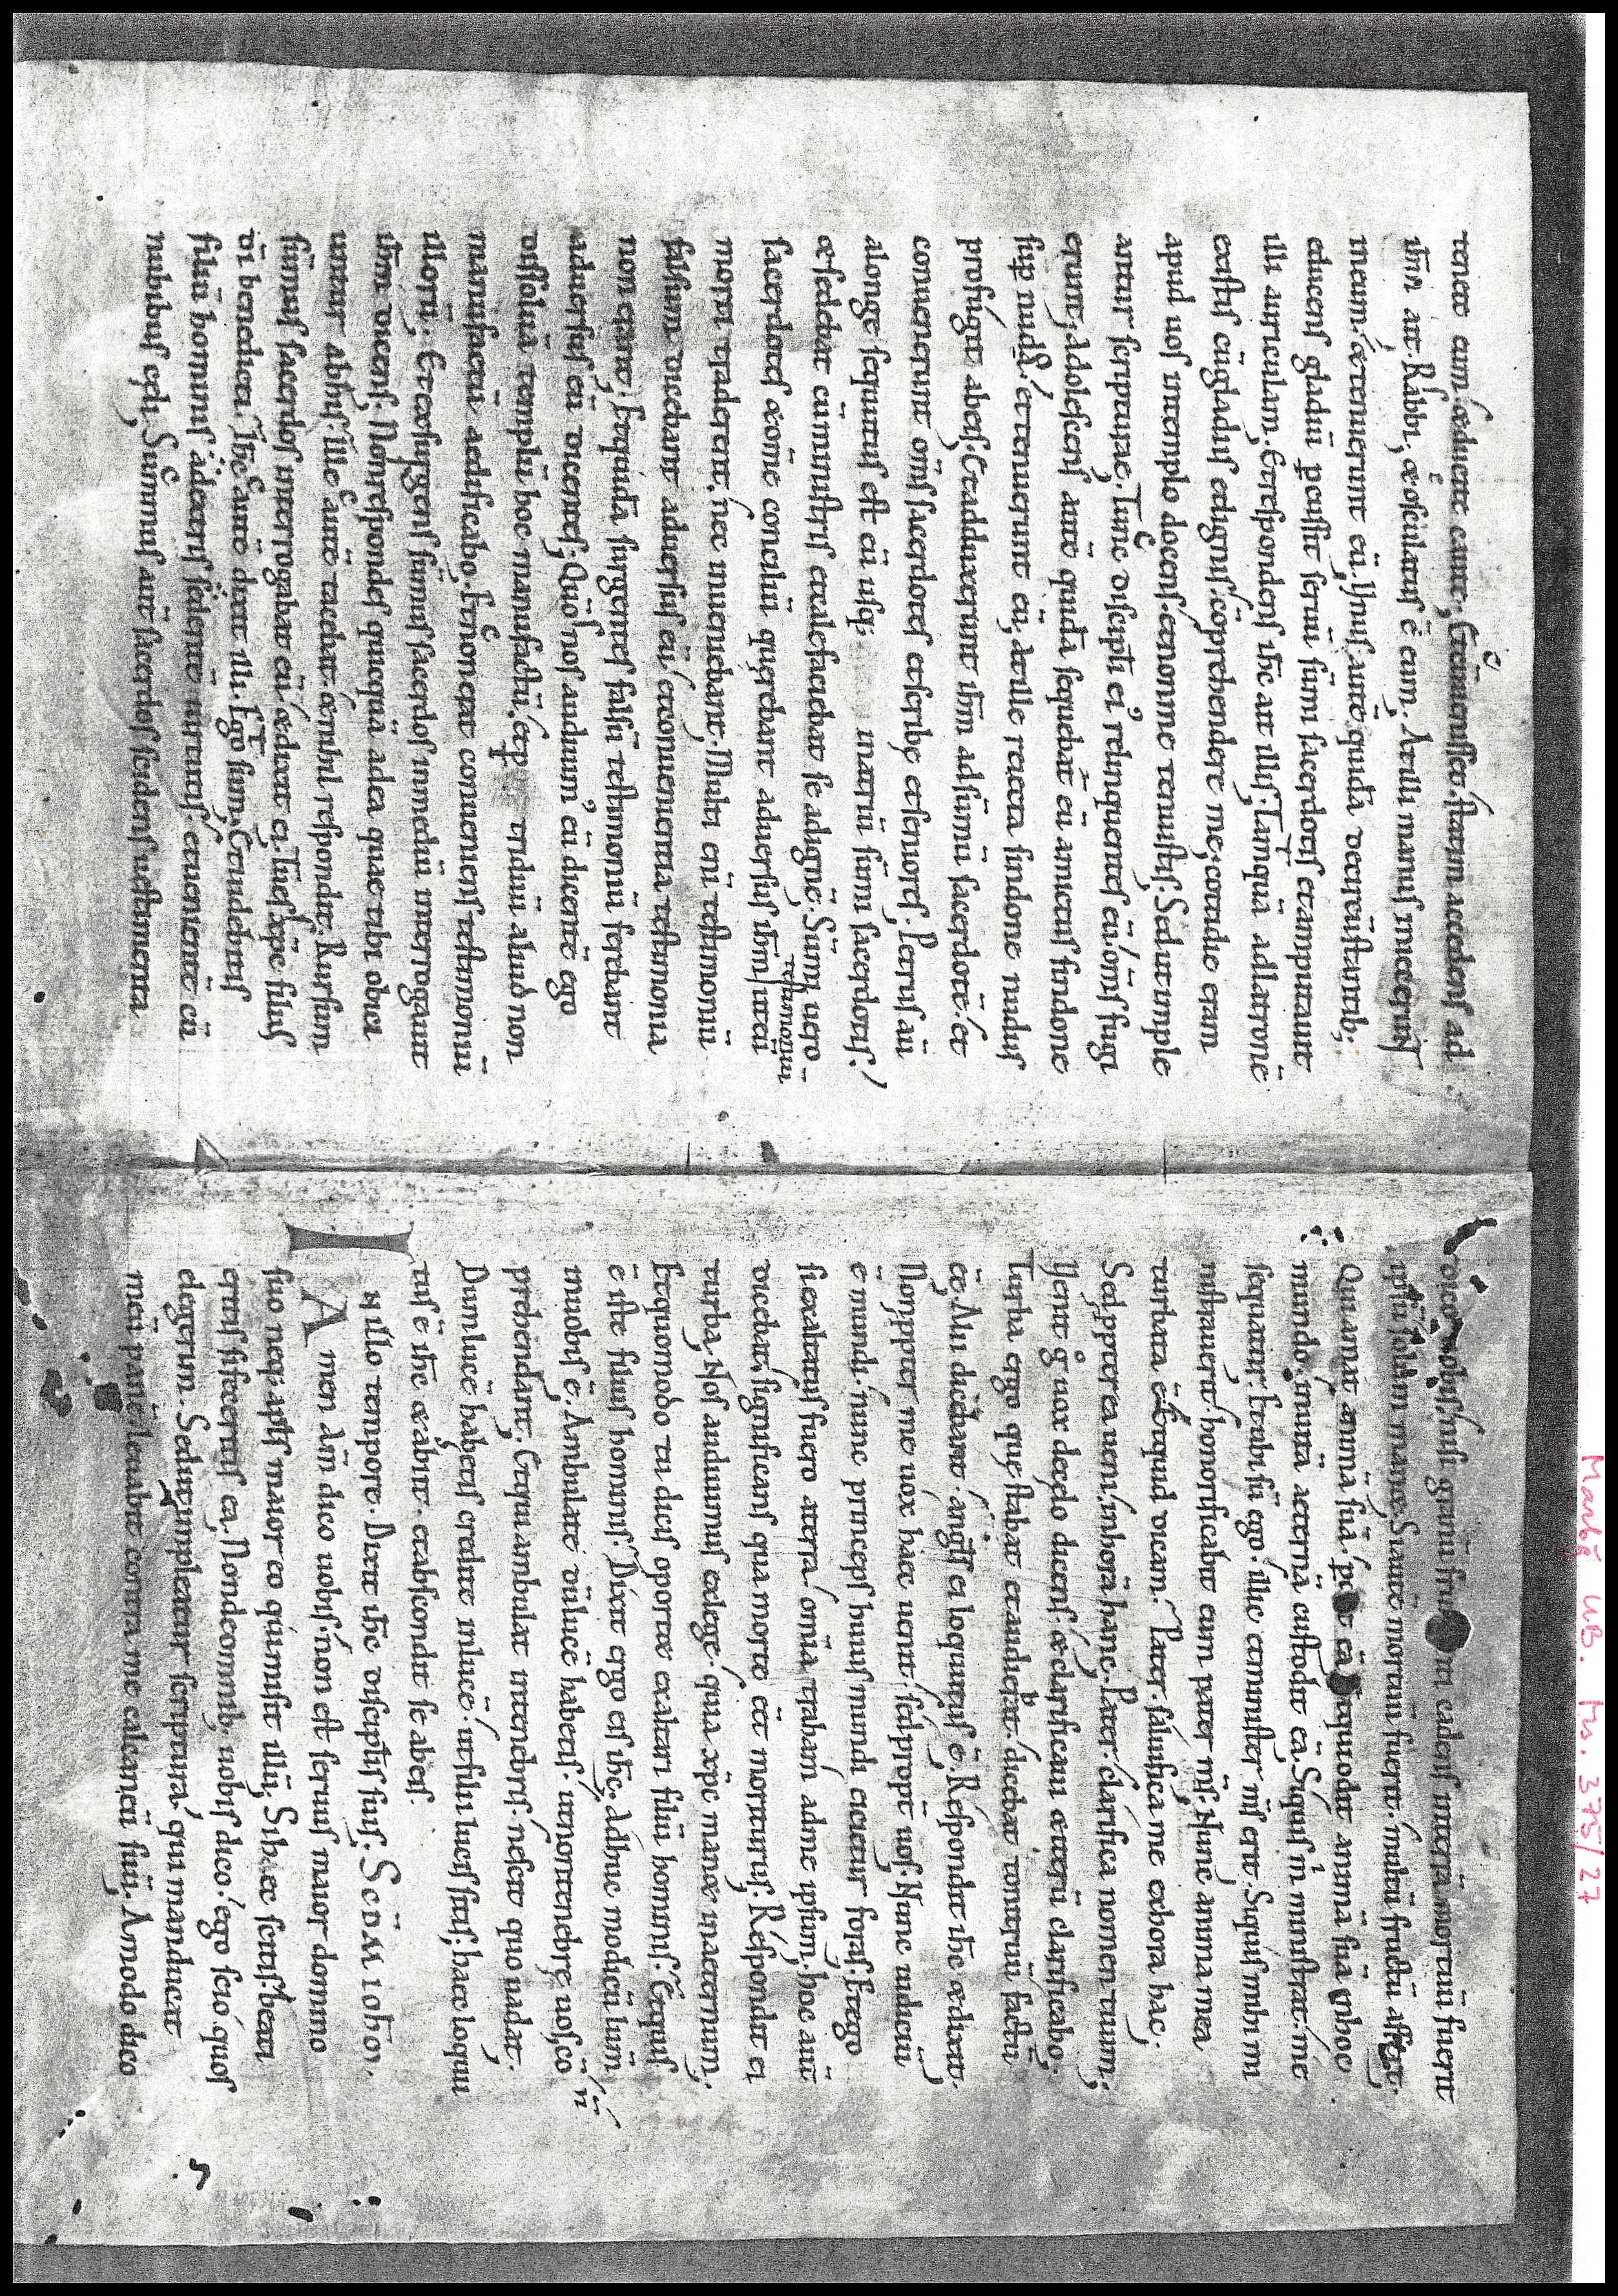 tenete eum. & ducite caute; Et cū venisset. statim accedens ad
ihm ait. Rabbi; & osculatus ē eum; At illi manus iniecerunt
meum. & tenuerunt eū. Unus autē quidā de circūstantib;
educens gladiū pcussit seruū sūmi sacerdotis et amputauit
illi auriculam; Et respondens ihc ait illis; Tamquā ad latronē
existis cū gladiis et lignis. cōprehendere me; cottidie eram
apud uos in templo docens. et non me tenuistis; Sed ut imple
antur scripturae; Tunc discipli ei' relinquentes eū. om̄s fuge
erunt; Adolescens autē quidā sequebat' eū. amictus sindone
sup nuda. et tenuerunt eū; At ille reiecta sindone nudus
profugit ab eis; Et adduxerunt ihm ad sūmū sacerdotē. et
conuenerunt om̄s sacerdotes et scribę et seniores; Petrus aū
a longe sequutus est eū usq; in atriū sūmi sacerdotis.
& sedebat cū ministris et calefaciebat se ad ignē; Sūmi uero
sacerdotes & om̄e conciliū quęrebant aduersus ihm
testimoniū
morti traderent. nec inueniebant; Multi enī testimoniū
falsum dicebant aduersus eū. et conuenientia testimonia
non erant; Et quidā surgentes falsū testimoniū ferebant
aduersus eū dicentes; Quō nos audiuim' eū dicentē ego
dissoluā templū hoc manu factū. et p triduū aliud non
manu factū aedificabo; Et non erat conueniens testimoniū
illorū; Et exsurgens sūmus sacerdos in mediū interrogauit
ihm dicens; Non respondes quicquā ad ea quae tibi obici
untur ab his; Ille autē tacebat. & nihil respondit; Rursum
sūmus sacerdos interrogabat eū. & dixit ei; Tu es xpc filius
dī benedicti; Ihc autē dixit illi; Ego sum; Et uidebitis
filiū hominis a dextris sedentē uirtutis. et uenientē cū
nubibus cęli; Summus autē sacerdos scidens uestimenta
dico uobis. nisi granū fru in cadens in terrā mortuū fuerit
ipsū solum manet; Si autē mortuū fuerit. multū fructū affert;
Qui amat animā suā. p et eā qui odit animā suā in hoc
mundo. in uitā aeternā custodit eā; Siquis m̄ ministrat. me
sequatur. Et ubi sū ego. illic et minister ms erit; Siquis mihi mi
nistrauerit. honorificabit eum pater ms; Nunc anima mea
turbata ē. Et quid dicam; Pater saluifica me ex hora hac;
Sed pterea ueni in horā hanc; Pater clarifica nomen tuum;
Uenit g uox de cęlo dicens; & clarificaui & iterū clarificabo;
Turba ergo quę stabat et audierat. dicebat tonitruū factū
ēē; Alii dicebant. angls ei loquutus ē; Respondit ihc & dixit;
Non ppter me uox haec uenit. sed propt' uos; Nunc iudiciū
ē mundi. nunc princeps huius mundi eicietur foras; Et ego
si exaltatus fuero a terra. omnia traham ad me ipsum; hoc aūt
dicebat. significans qua morte eēt moriturus; Respondit ei
turba; Nos audiuimus ex lege. quia xpc manet in aeternum;
Et quomodo tu dicis oportet exaltari filiū hominis; Et quis
ē iste filius hominis; Dixit ergo eis ihc; Adhuc modicū lum̄
in uobis ē; Ambulate dū lucē habetis. ut non tenebrę uos cō
prehendant; Et qui ambulat in tenebris. nescit quo uadat;
Dum lucē habetis credite in lucē. ut filii lucis sitis; haec loquu
tus ē ihc & abiit. et abscondit se ab eis;
In illo tempore. Dixit ihc disciplis suis; SCDM IOHON.
Amen am̄ dico uobis. non est seruus maior domino
suo neq; apls maior eo qui misit illū; Si haec scitis. beati
eritis si feceritis ea; Non de omnib; uobis dico. ego scio quos
elegerim; Sed ut impleatur scriptura. qui manducat
meū panē. leuabit contra me calcaneū suū; Amodo dico
Marbg UB. Hs. 375/27